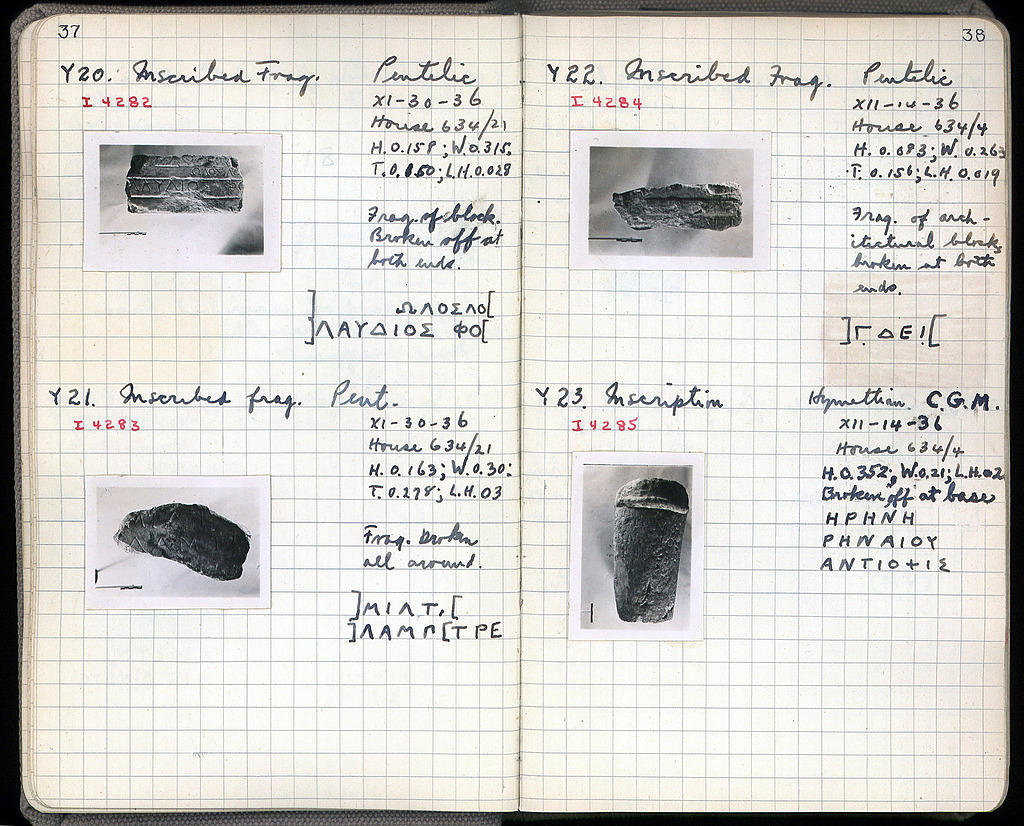 37
Y20. Inscribed Frag. Pentelic
I 4282
XI-30-36
House 634/21
H.0.158; W.0.315;
T.0.050; L.H.0.028
Frag. of block.
Broken off at
both ends.
] ΩΛΟΣΛΟ[
]ΛΑΥΔΙΟΣ ΦΟ[
Y21. Inscribed frag. Pent.
I 4283
XI-30-36
House 634/21
H.0.163; W.0.30;
T.0.278; L.H.03
Frag. broken
all around.
]ΜΙΛΤ.[
]ΛΑΜΠ[ΤΡΕ
38
Y22. Inscribed Frag. Pentelic
I 4284
XII-14-36
House 634/4
H. 0.083; W. 0.263
T. 0.156; L.H. 0.019
Frag. of arch-
itectural block,
broken at both
ends.
]Γ̣ ΔΕΙ̣[
Y23. Inscription Hymettian. C.G.M.
I 4285
XII-14-36
House 634/4
H.0.352; W.0.21; L.H.02
Broken off at base
ΗΡΗΝΗ
ΡΗΝΑΙΟΥ
ΑΝΤΙΟ+ΙΣ